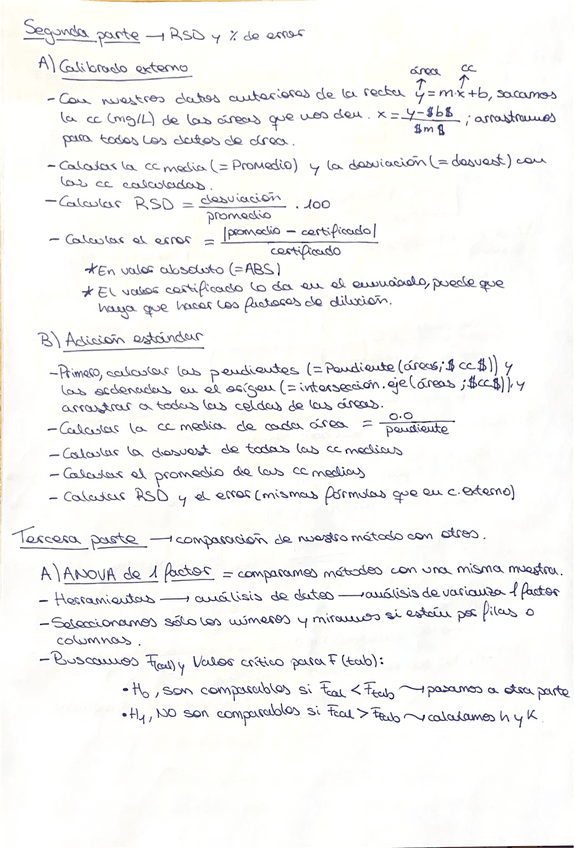 Segunda parte → RSD y % de error
A) Calibrado externo
área cc
- Con nuestros datos anteriores de la recta y = m·x + b, sacamos
la cc (mg/L) de las áreas que nos den. x = y - $b$ / $m$ ; arrastramos
para todos los datos de área.
- Calcular la cc media (= Promedio) y la desviación (= desvest) con
las cc calculadas.
- Calcular RSD = desviación / promedio · 100
- Calcular el error = |promedio - certificado| / certificado
* En valor absoluto (= ABS)
* El valor certificado lo da en el enunciado, puede que
haya que hacer los factores de dilución.
B) Adición estándar
- Primero, calcular las pendientes (= Pendiente (áreas; $cc$)) y
las ordenadas en el origen (= intersección.eje (áreas ; $cc$)), y
arrastrar a todas las celdas de las áreas.
- Calcular la cc media de cada área = o.o / pendiente
- Calcular la desvest de todas las cc medias
- Calcular el promedio de las cc medias
- Calcular RSD y el error (mismas fórmulas que en c. externo)
Tercera parte → comparación de nuestro método con otros.
A) ANOVA de 1 factor = comparamos métodos con una misma muestra.
- Herramientas → análisis de datos → análisis de varianza 1 factor
- Seleccionamos sólo los números y miramos si están por filas o
columnas.
- Buscamos F(cal) y Valor crítico para F (tab):
• H₀, son comparables si Fcal < Ftab → pasamos a otra parte
• H₁, NO son comparables si Fcal > Ftab → calculamos h y K.